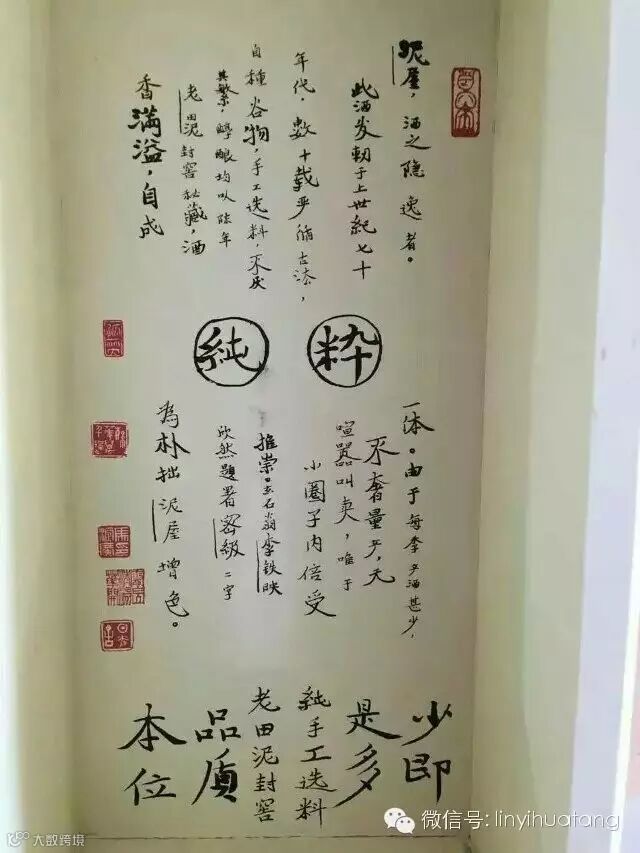 泥屋，酒之隐逸者。
此酒发轫于上世紀七十
年代，數十載严循古法，
自種谷物，手工选料，不厌
其繁，醇酿均以陈年
老田泥封窖秘藏，酒
香满溢，自成
粹
純
一体。由于每季产酒甚少，
不奢量产，无
喧嚣叫卖，唯于
小圈子内倍受
推崇。玄石翁李铁映
欣然題署密級二字
為朴拙泥屋增色。
少即
是多
純手工选料
老田泥封窖
品质
本位
微信号: linyihuatang
大数跨境